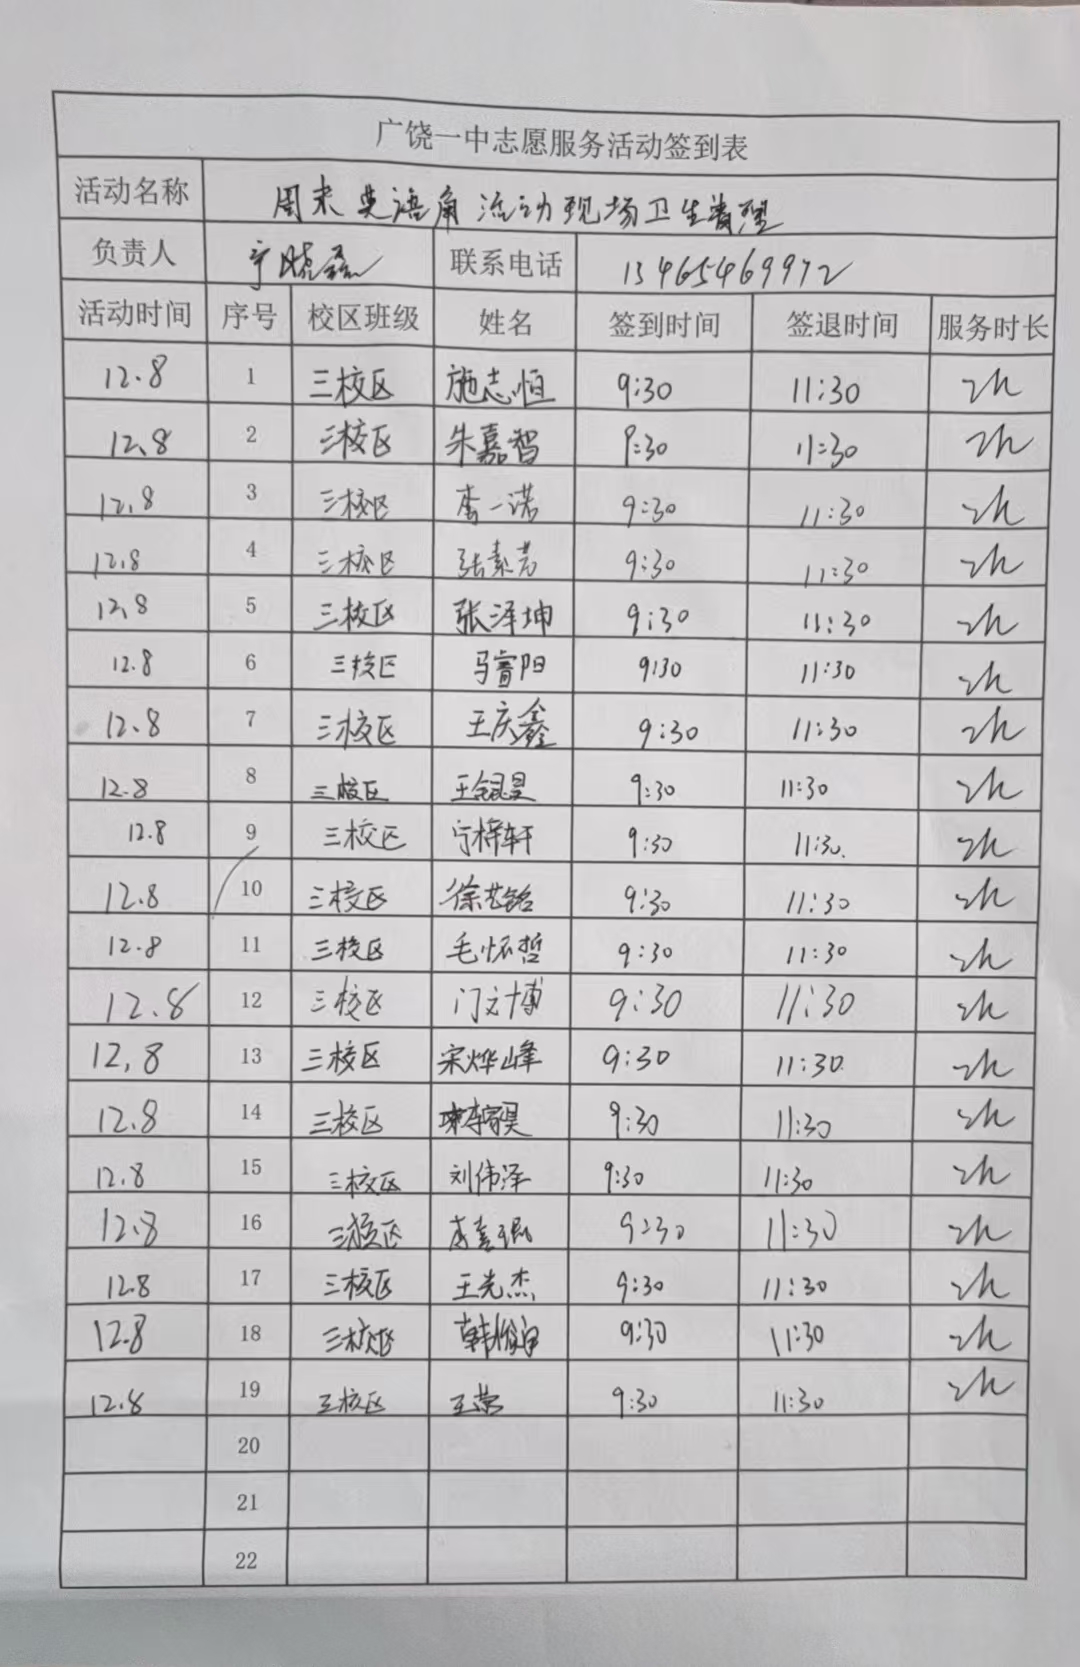 广饶一中志愿服务活动签到表
活动名称 周末英语角流动现场卫生管理
负责人 宁晓磊 联系电话 13465469972
活动时间 序号 校区班级 姓名 签到时间 签退时间 服务时长
12.8 1 三校区 施志恒 9:30 11:30 2h
12.8 2 三校区 朱嘉智 9:30 11:30 2h
12.8 3 三校区 李一诺 9:30 11:30 2h
12.8 4 三校区 张素芳 9:30 11:30 2h
12.8 5 三校区 张泽坤 9:30 11:30 2h
12.8 6 三校区 马睿阳 9:30 11:30 2h
12.8 7 三校区 王庆鑫 9:30 11:30 2h
12.8 8 三校区 王锟昊 9:30 11:30 2h
12.8 9 三校区 宁梓轩 9:30 11:30 2h
12.8 10 三校区 徐艺铭 9:30 11:30 2h
12.8 11 三校区 毛怀哲 9:30 11:30 2h
12.8 12 三校区 门文博 9:30 11:30 2h
12.8 13 三校区 宋烨峰 9:30 11:30 2h
12.8 14 三校区 9:30 11:30 2h
12.8 15 三校区 刘伟泽 9:30 11:30 2h
12.8 16 三校区 9:30 11:30 2h
12.8 17 三校区 王先杰 9:30 11:30 2h
12.8 18 三校区 9:30 11:30 2h
12.8 19 三校区 王荣 9:30 11:30 2h
20
21
22